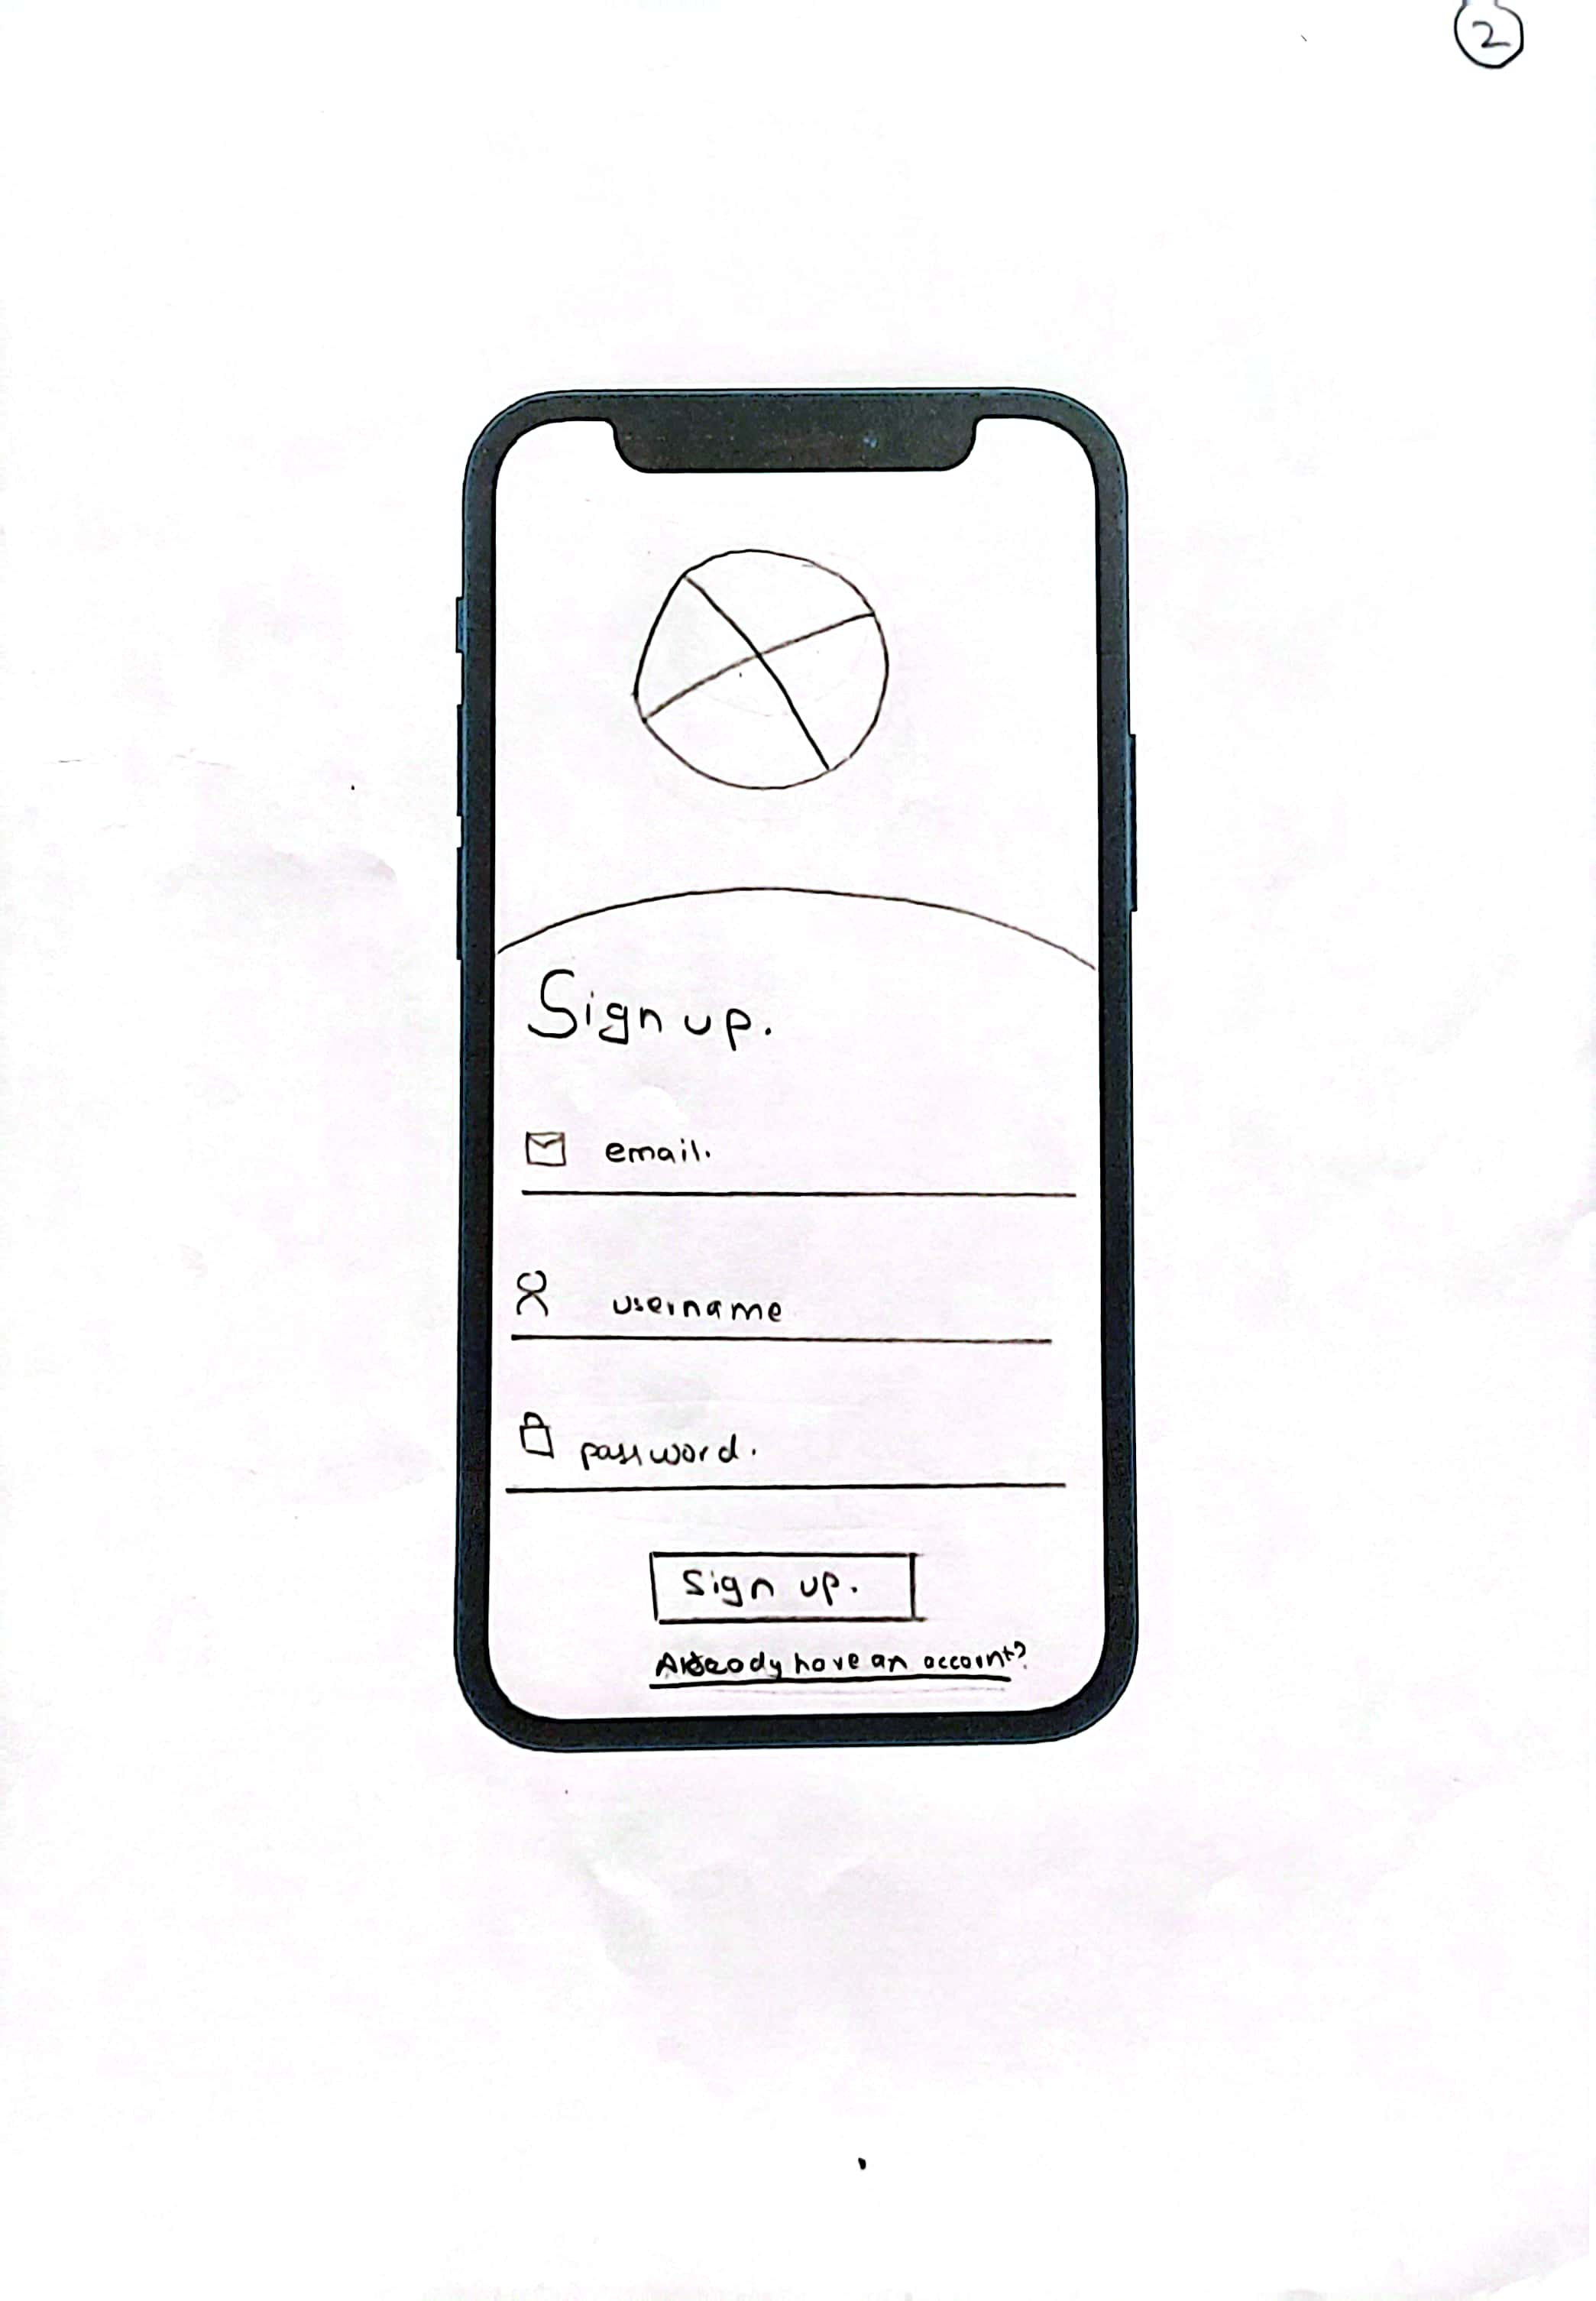 2
Sign up.
email.
username
password.
Sign up.
Already have an account?